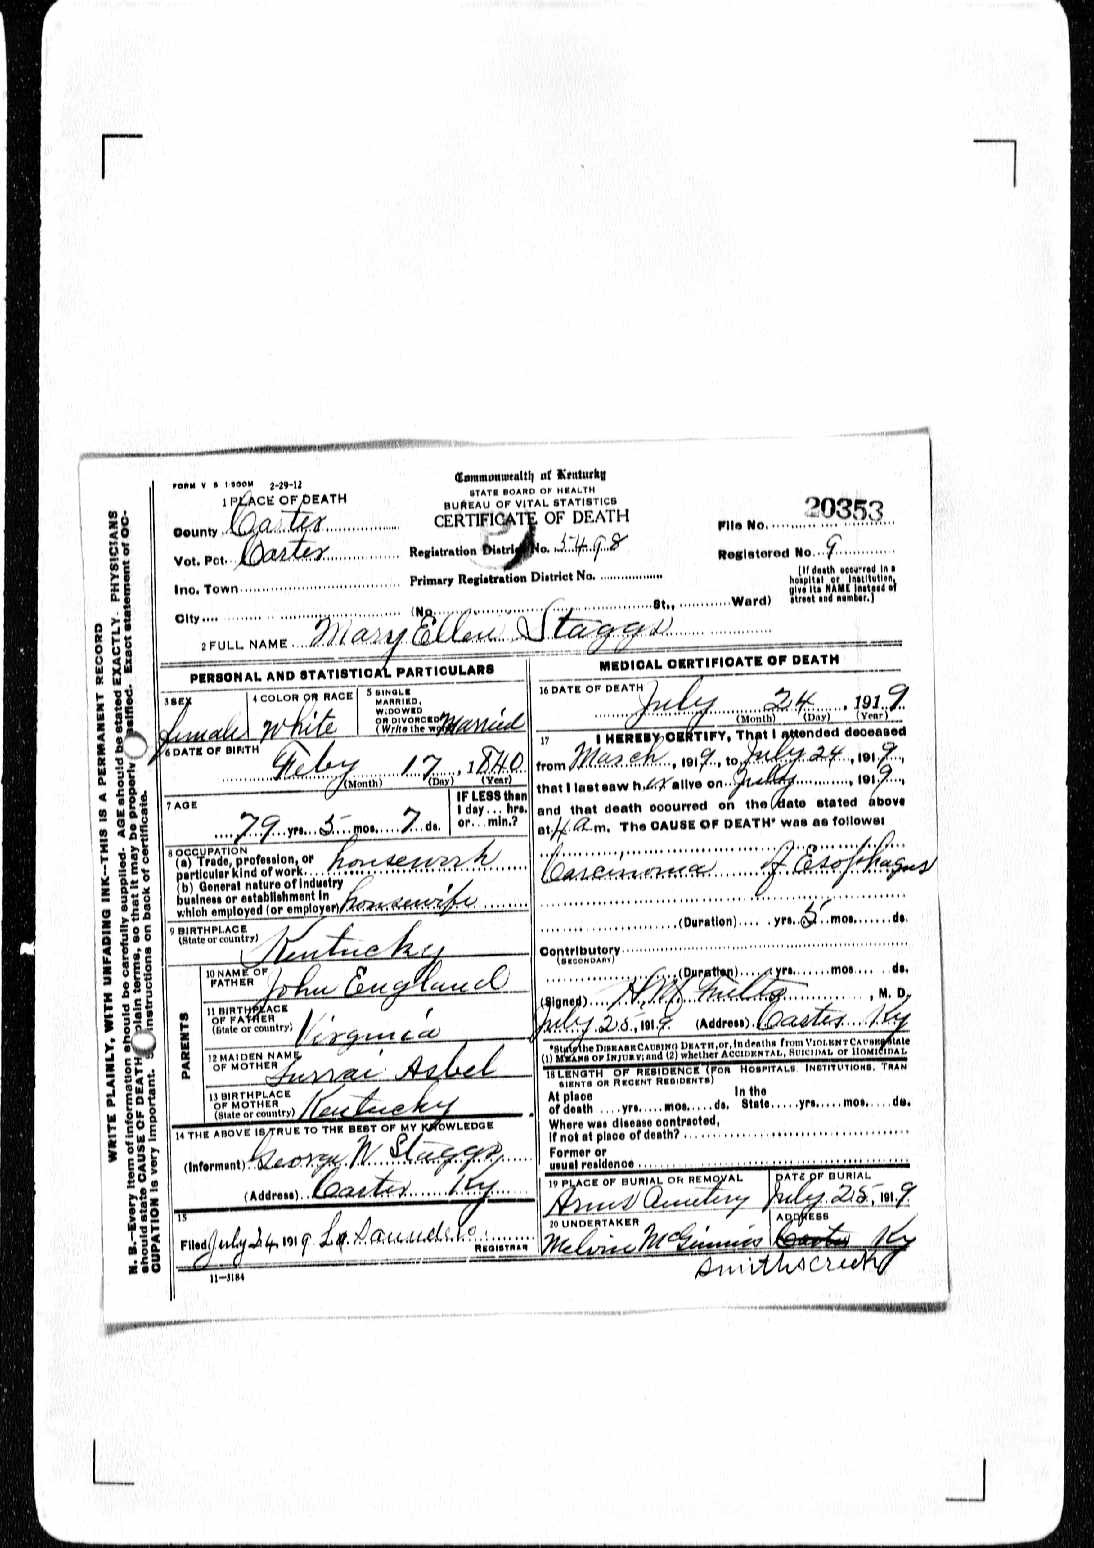 FORM V S 1-500M 2-29-12
Commonwealth of Kentucky
STATE BOARD OF HEALTH
BUREAU OF VITAL STATISTICS
CERTIFICATE OF DEATH
1 PLACE OF DEATH
County Carter
Vot. Pct. Carter
Inc. Town
City
Registration District No. 5498
Primary Registration District No.
(No. St., Ward)
File No. 20353
Registered No. 9
[If death occurred in a
hospital or institution,
give its NAME instead of
street and number.]
2 FULL NAME Mary Ellen Staggs
PERSONAL AND STATISTICAL PARTICULARS
3 SEX
female
4 COLOR OR RACE
White
5 SINGLE
MARRIED,
WIDOWED
OR DIVORCED
(Write the word) Married
6 DATE OF BIRTH
Feby 17, 1840
(Month) (Day) (Year)
7 AGE
79 yrs. 5 mos. 7 ds.
IF LESS than
1 day ... hrs.
or ... min.?
8 OCCUPATION
(a) Trade, profession, or
particular kind of work housework
(b) General nature of industry
business or establishment in
which employed (or employer) housewife
9 BIRTHPLACE
(State or country) Kentucky
PARENTS
10 NAME OF
FATHER John England
11 BIRTHPLACE
OF FATHER
(State or country) Virginia
12 MAIDEN NAME
OF MOTHER Asbel
13 BIRTHPLACE
OF MOTHER
(State or country) Kentucky
14 THE ABOVE IS TRUE TO THE BEST OF MY KNOWLEDGE
(Informant) George W Staggs
(Address) Carter Ky
15
Filed July 24 1919 Saunders
REGISTRAR
11-3184
MEDICAL CERTIFICATE OF DEATH
16 DATE OF DEATH
July 24, 1919
(Month) (Day) (Year)
17 I HEREBY CERTIFY, That I attended deceased
from March, 1919, to July 24, 1919,
that I last saw her alive on July, 1919,
and that death occurred on the date stated above
at 4 a m. The CAUSE OF DEATH* was as follows:
Carcinoma of Esophagus
(Duration) yrs. 5 mos. ds.
Contributory
(SECONDARY)
(Duration) yrs. mos. ds.
(Signed) , M. D.
July 25, 1919 (Address) Carter Ky
*State the DISEASE CAUSING DEATH, or, in deaths from VIOLENT CAUSES state
(1) MEANS OF INJURY; and (2) whether ACCIDENTAL, SUICIDAL or HOMICIDAL
18 LENGTH OF RESIDENCE (FOR HOSPITALS, INSTITUTIONS, TRAN
SIENTS OR RECENT RESIDENTS)
At place In the
of death yrs. mos. ds. State yrs. mos. ds.
Where was disease contracted,
if not at place of death?
Former or
usual residence
19 PLACE OF BURIAL OR REMOVAL
Cemetery
DATE OF BURIAL
July 25, 1919
20 UNDERTAKER
Melvine McGinnis
ADDRESS
Carter Ky
Smithscreek
WRITE PLAINLY, WITH UNFADING INK--THIS IS A PERMANENT RECORD
N. B.--Every item of information should be carefully supplied. AGE should be stated EXACTLY. PHYSICIANS
should state CAUSE OF DEATH in plain terms, so that it may be properly classified. Exact statement of OC-
CUPATION is very important. See instructions on back of certificate.